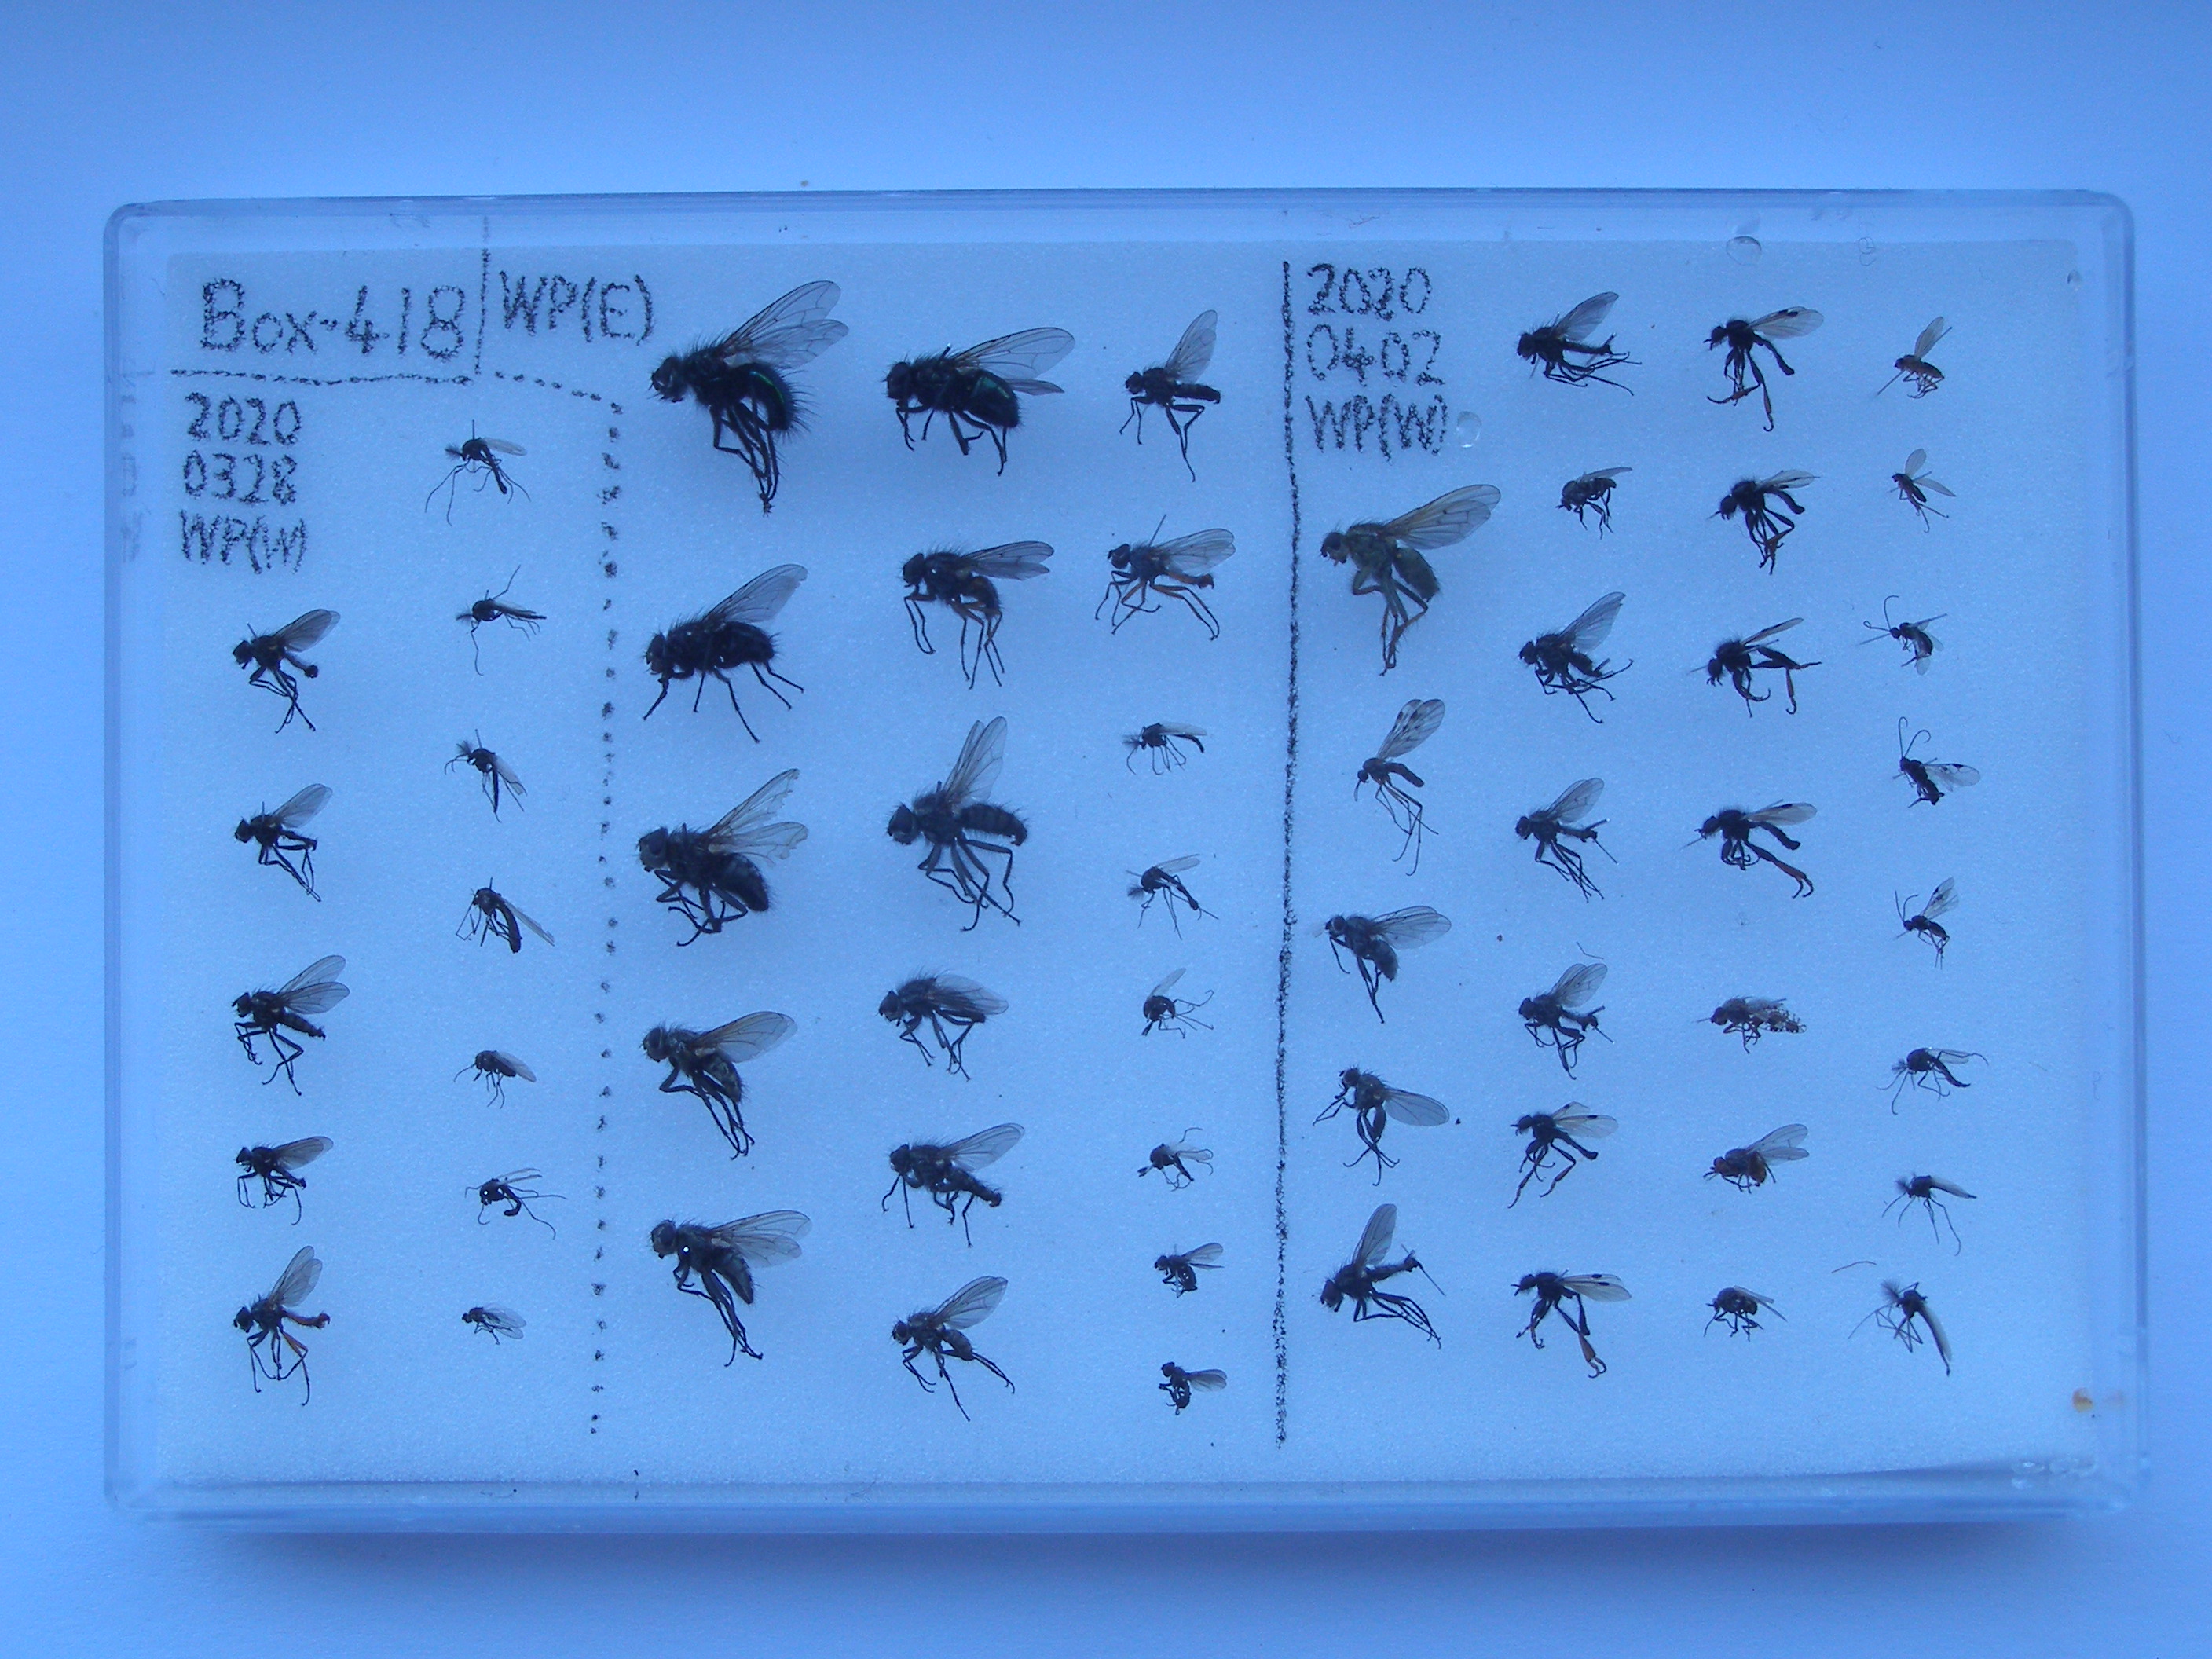 Box-418
WP(E)
2020
0328
WP(W)
2020
0402
WP(W)